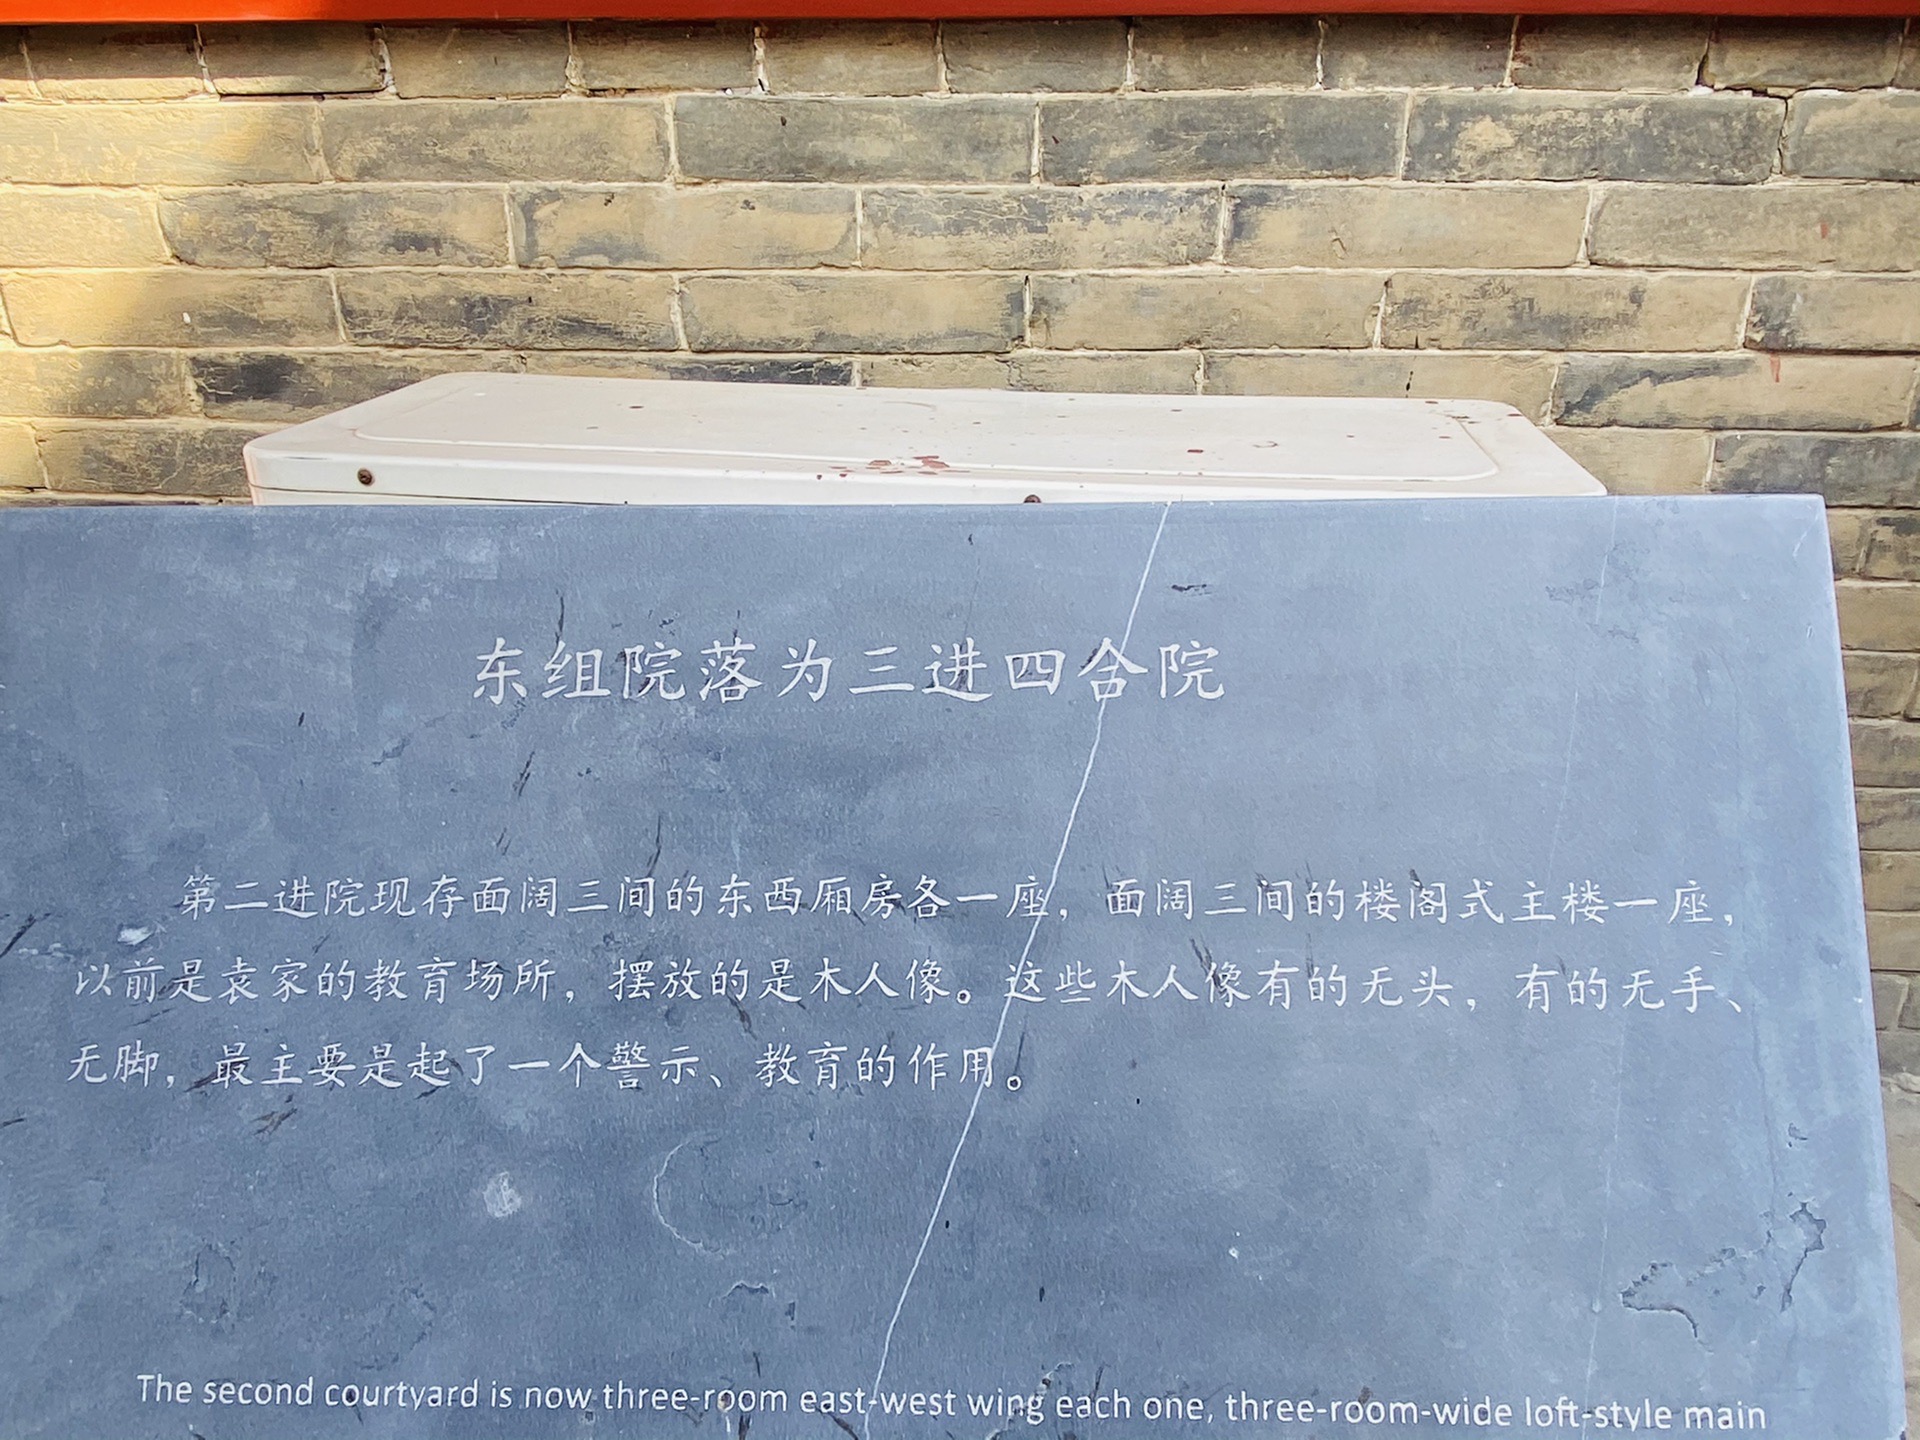 东组院落为三进四合院
第二进院现存面阔三间的东西厢房各一座，面阔三间的楼阁式主楼一座，
以前是袁家的教育场所，摆放的是木人像。这些木人像有的无头，有的无手、
无脚，最主要是起了一个警示、教育的作用。
The second courtyard is now three-room east-west wing each one, three-room-wide loft-style main